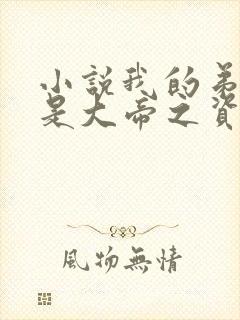 小說我的弟
是大帝之資
風物無情